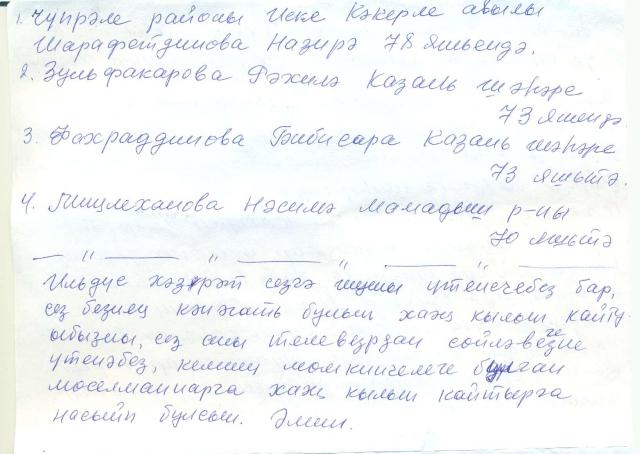 1. Чүпрәле районы Иске Кәкерле авылы
Шарафетдинова Назирә 78 яшьендә.
2. Зульфакарова Рәхилә Казань шәһәре
73 яшендә
3. Фәхраддинова Бибисара Казань шәһәре
73 яшьтә.
4. Мицлеханова Нәсимә Мамадыш р-ны
70 яшьтә
— " — " — " — " —
Ильдус хәзрәт сезгә үтенечебез бар,
сез безнең кәнәгать булып хаҗ кылып кайту-
ыбызны, сез аны телевездан сөйләвегезне
үтенәбез, кемнең мөмкинчелеге булган
моселманнарга хаҗ кылып кайтырга
насыйп булсын. Әмин.